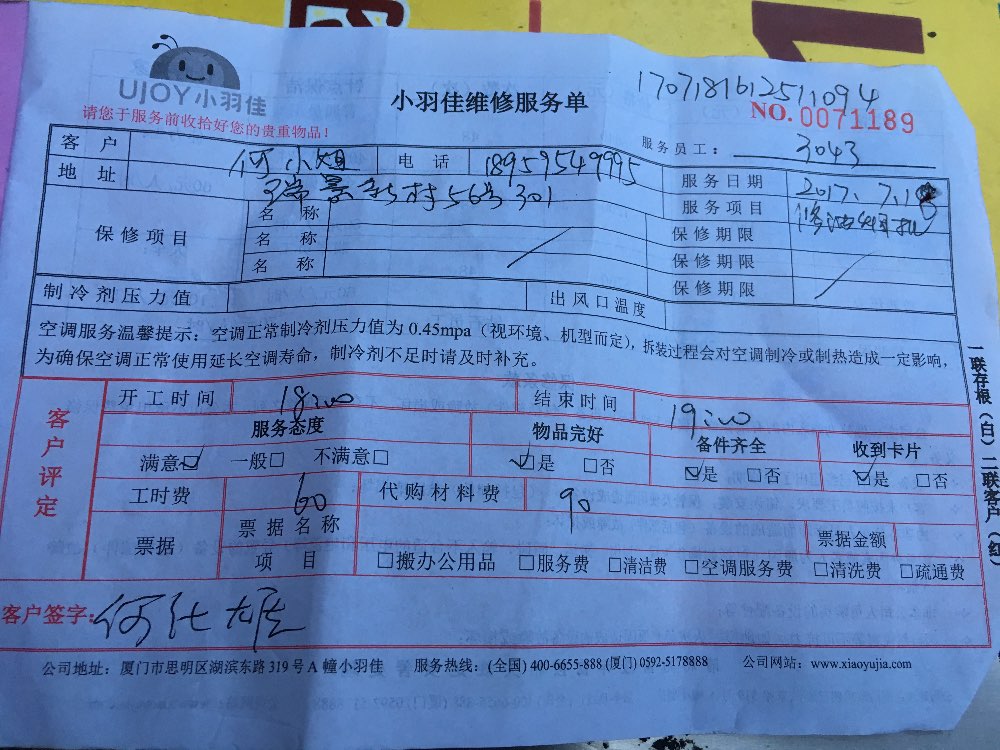 UJOY小羽佳
请您于服务前收拾好您的贵重物品!
小羽佳维修服务单
1707181612511094
NO.0071189
服务员工: 3043
客户 何小姐 电话 18959549995 服务日期 2017.7.18
地址 瑞景新村56号301 服务项目
保修项目 名称 保修期限
名称 保修期限
名称 保修期限
制冷剂压力值 出风口温度
空调服务温馨提示:空调正常制冷剂压力值为0.45mpa(视环境、机型而定),拆装过程会对空调制冷或制热造成一定影响,
为确保空调正常使用延长空调寿命,制冷剂不足时请及时补充。
客户评定
开工时间 18:00 结束时间 19:00
服务态度 物品完好 备件齐全 收到卡片
满意☑ 一般□ 不满意□ ☑是 □否 ☑是 □否 ☑是 □否
工时费 60 代购材料费 90
票据 票据名称 票据金额
项目 □搬办公用品 □服务费 □清洁费 □空调服务费 □清洗费 □疏通费
客户签字: 何仕雄
公司地址:厦门市思明区湖滨东路319号A幢小羽佳 服务热线:(全国)400-6655-888(厦门)0592-5178888 公司网站:www.xiaoyujia.com
一联存根(白)二联客户(红)